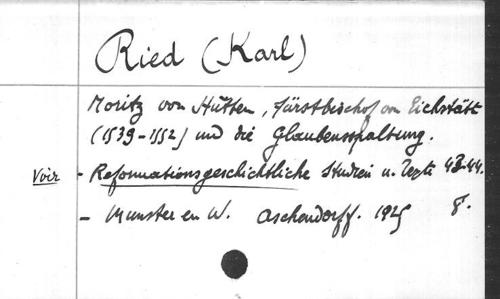 Ried (Karl)
Moritz von Hütten, Fürstbischof von Eichstätt
(1539-1552) und die Glaubensspaltung.
Voir - Reformationsgeschichtliche Studien u. Texte 43-44.
- Munster en W. Aschendorff. 1925 8°.